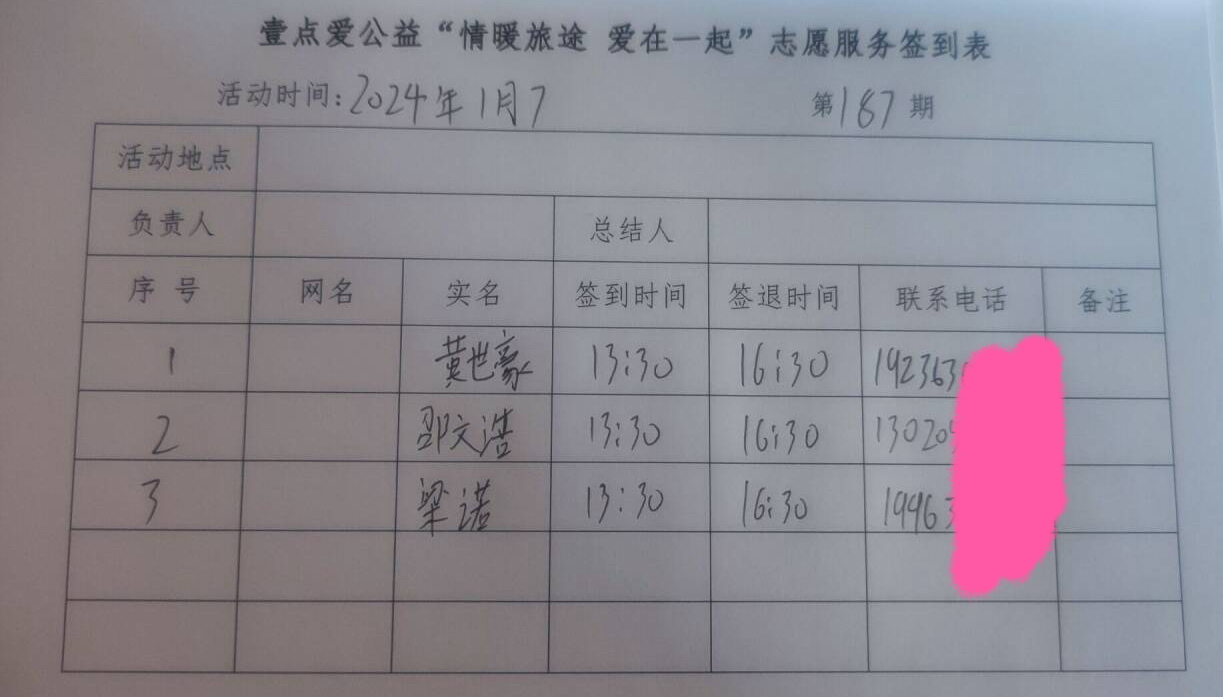 壹点爱公益“情暖旅途 爱在一起”志愿服务签到表
活动时间:2024年1月7 第187期
活动地点
负责人 总结人
序号 网名 实名 签到时间 签退时间 联系电话 备注
1 黄世豪 13:30 16:30 192363
2 邵文浩 13:30 16:30 13020
3 梁诺 13:30 16:30 19963